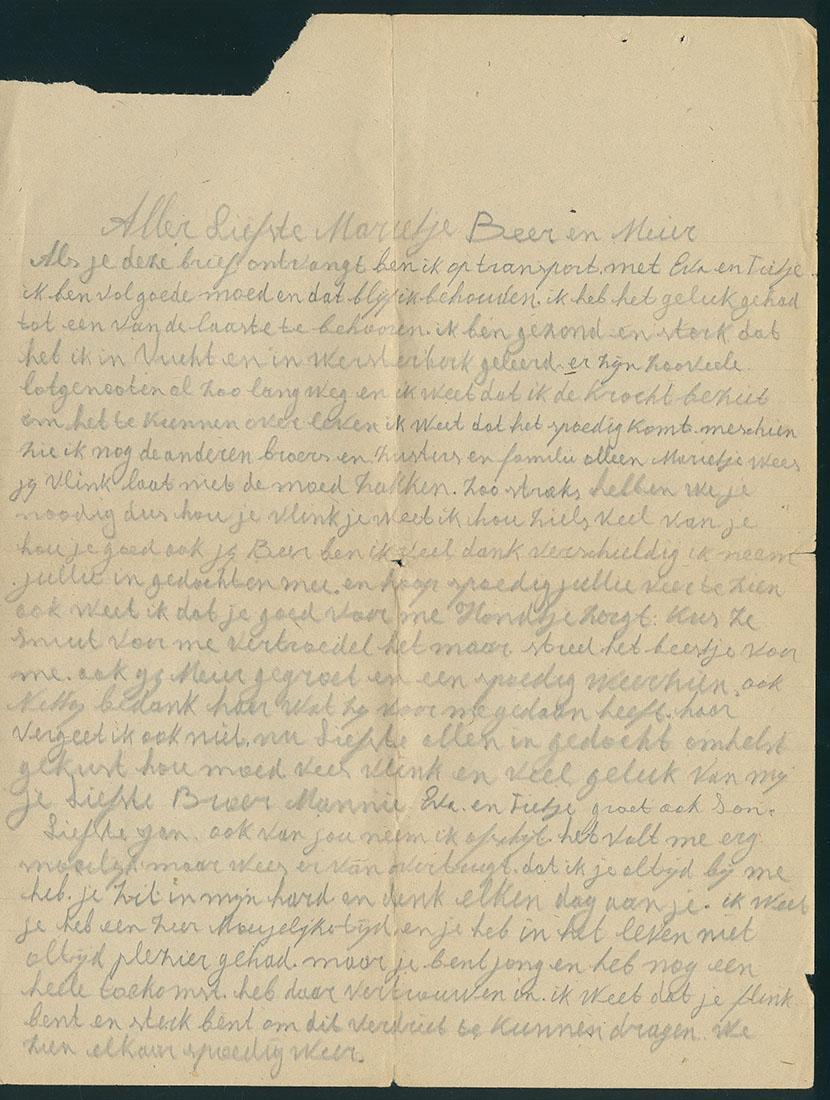 Aller Liefste Marietje Beer en Meier
Als je deze brief ontvangt ben ik op transport. met Eva en Tietje
ik ben vol goede moed en dat blijf ik behouden. ik heb het geluk gehad
tot een van de laaste te behooren. ik ben gezond en sterk dat
heb ik in Vucht en in Wersterbork geleerd. er zijn zooveele
lotgenooten al zoo lang weg en ik weet dat ik de kracht bezit
om het te kunnen over leven ik weet dat het spoedig komt. meschien
zie ik nog de anderen broers en zusters en familie alleen Marietje wees
jij vlink laat niet de moed zakken. zoo straks hebben we je
noodig dus hou je vlink je weet ik hou ziels veel van je
hou je goed ook jij Beer ben ik veel dank verschuldig ik neem
jullie in gedachten mee. en hoop spoedig jullie weer te zien
ook weet ik dat je goed voor me Hondtje zorgt: kus ze
snuit voor me vertroedel het maar streel het beestje voor
me. ook jij Meier gegroet en een spoedig weerzien. ook
Netty bedank haar wat zij voor me gedaan heeft. haar
vergeet ik ook niet. nu Liefste allen in gedacht omhelst
gekust hou moed wees vlink en veel geluk van mij
je Liefste Broer Mannie. Eva. en Tietje groet ook Son.
Liefste Jan. ook van jou neem ik afscheit. het valt me erg
moeilijk maar wees er van overtuigt. dat ik je altijd bij me
heb. je zit in mijn hard en denk elken dag aan je. ik weet
je heb een zeer Moeijelijke tijd en je heb in het leven niet
altijd plezier gehad. maar je bent jong en heb nog een
heele toekomst. heb daar vertrouwen in. ik weet dat je flink
bent en sterk bent om dit verdriet te kunnen dragen. We
zien elkaar spoedig weer.